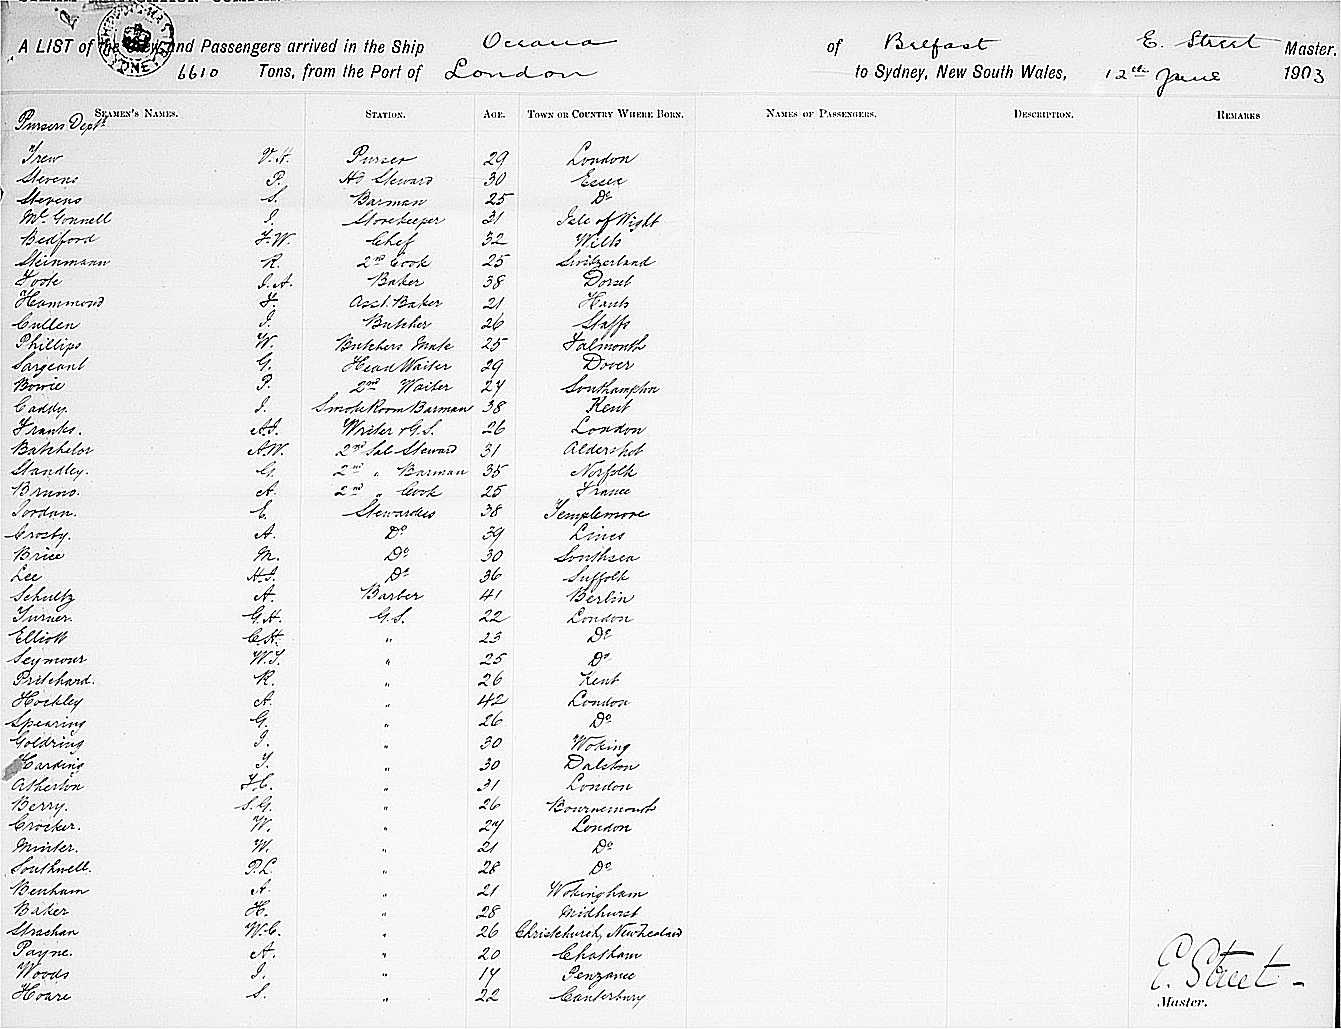 A LIST of the Crew and Passengers arrived in the Ship Oceana of Belfast E. Street Master.
6610 Tons, from the Port of London to Sydney, New South Wales, 12th June 1903
SEAMEN'S NAMES. STATION. AGE. TOWN OR COUNTRY WHERE BORN. NAMES OF PASSENGERS. DESCRIPTION. REMARKS
Pursers Dept
Trew V.H. Purser 29 London
Stevens P. Hd Steward 30 Essex
Stevens S. Barman 25 Do
McGonnell J. Storekeeper 31 Isle of Wight
Bedford F.W. Chef 32 Wilts
Steinmann R. 2nd Cook 25 Switzerland
Foote J.A. Baker 38 Dorset
Hammond F. Asst. Baker 21 Hants
Cullen J. Butcher 26 Staffs
Phillips W. Butchers Mate 25 Falmouth
Sargeant G. Head Waiter 29 Dover
Bowie P. 2nd Waiter 27 Southampton
Caddy. J. Smoke Room Barman 38 Kent
Franks. A.J. Writer & G.S. 26 London
Batchelor A.W. 2nd Sal Steward 31 Aldershot
Standley. G. 2nd " Barman 35 Norfolk
Bruno. A. 2nd " Cook 25 France
Jordan. E. Stewardess 38 Templemore
Crosby. A. Do 39 Lincs
Brice M. Do 30 Southsea
Lee H.J. Do 36 Suffolk
Schultz A. Barber 41 Berlin
Turner. G.H. G.S. 22 London
Elliott C.H. " 23 Do
Seymour W.J. " 25 Do
Pritchard. R. " 26 Kent
Hockley A. " 42 London
Spearing G. " 26 Do
Goldring J. " 30 Woking
Harding T. " 30 Dalston
Atherton F.C. " 31 London
Berry. S.G. " 26 Bournemouth
Crocker. W. " 27 London
Minter. W. " 21 Do
Southwell. P.L. " 28 Do
Benham A. " 21 Wokingham
Baker H. " 28 Midhurst
Strachan W.C. " 26 Christchurch, New Zealand
Payne. A. " 20 Chatham
Woods J. " 17 Penzance
Hoare S. " 22 Canterbury
E. Street
Master.